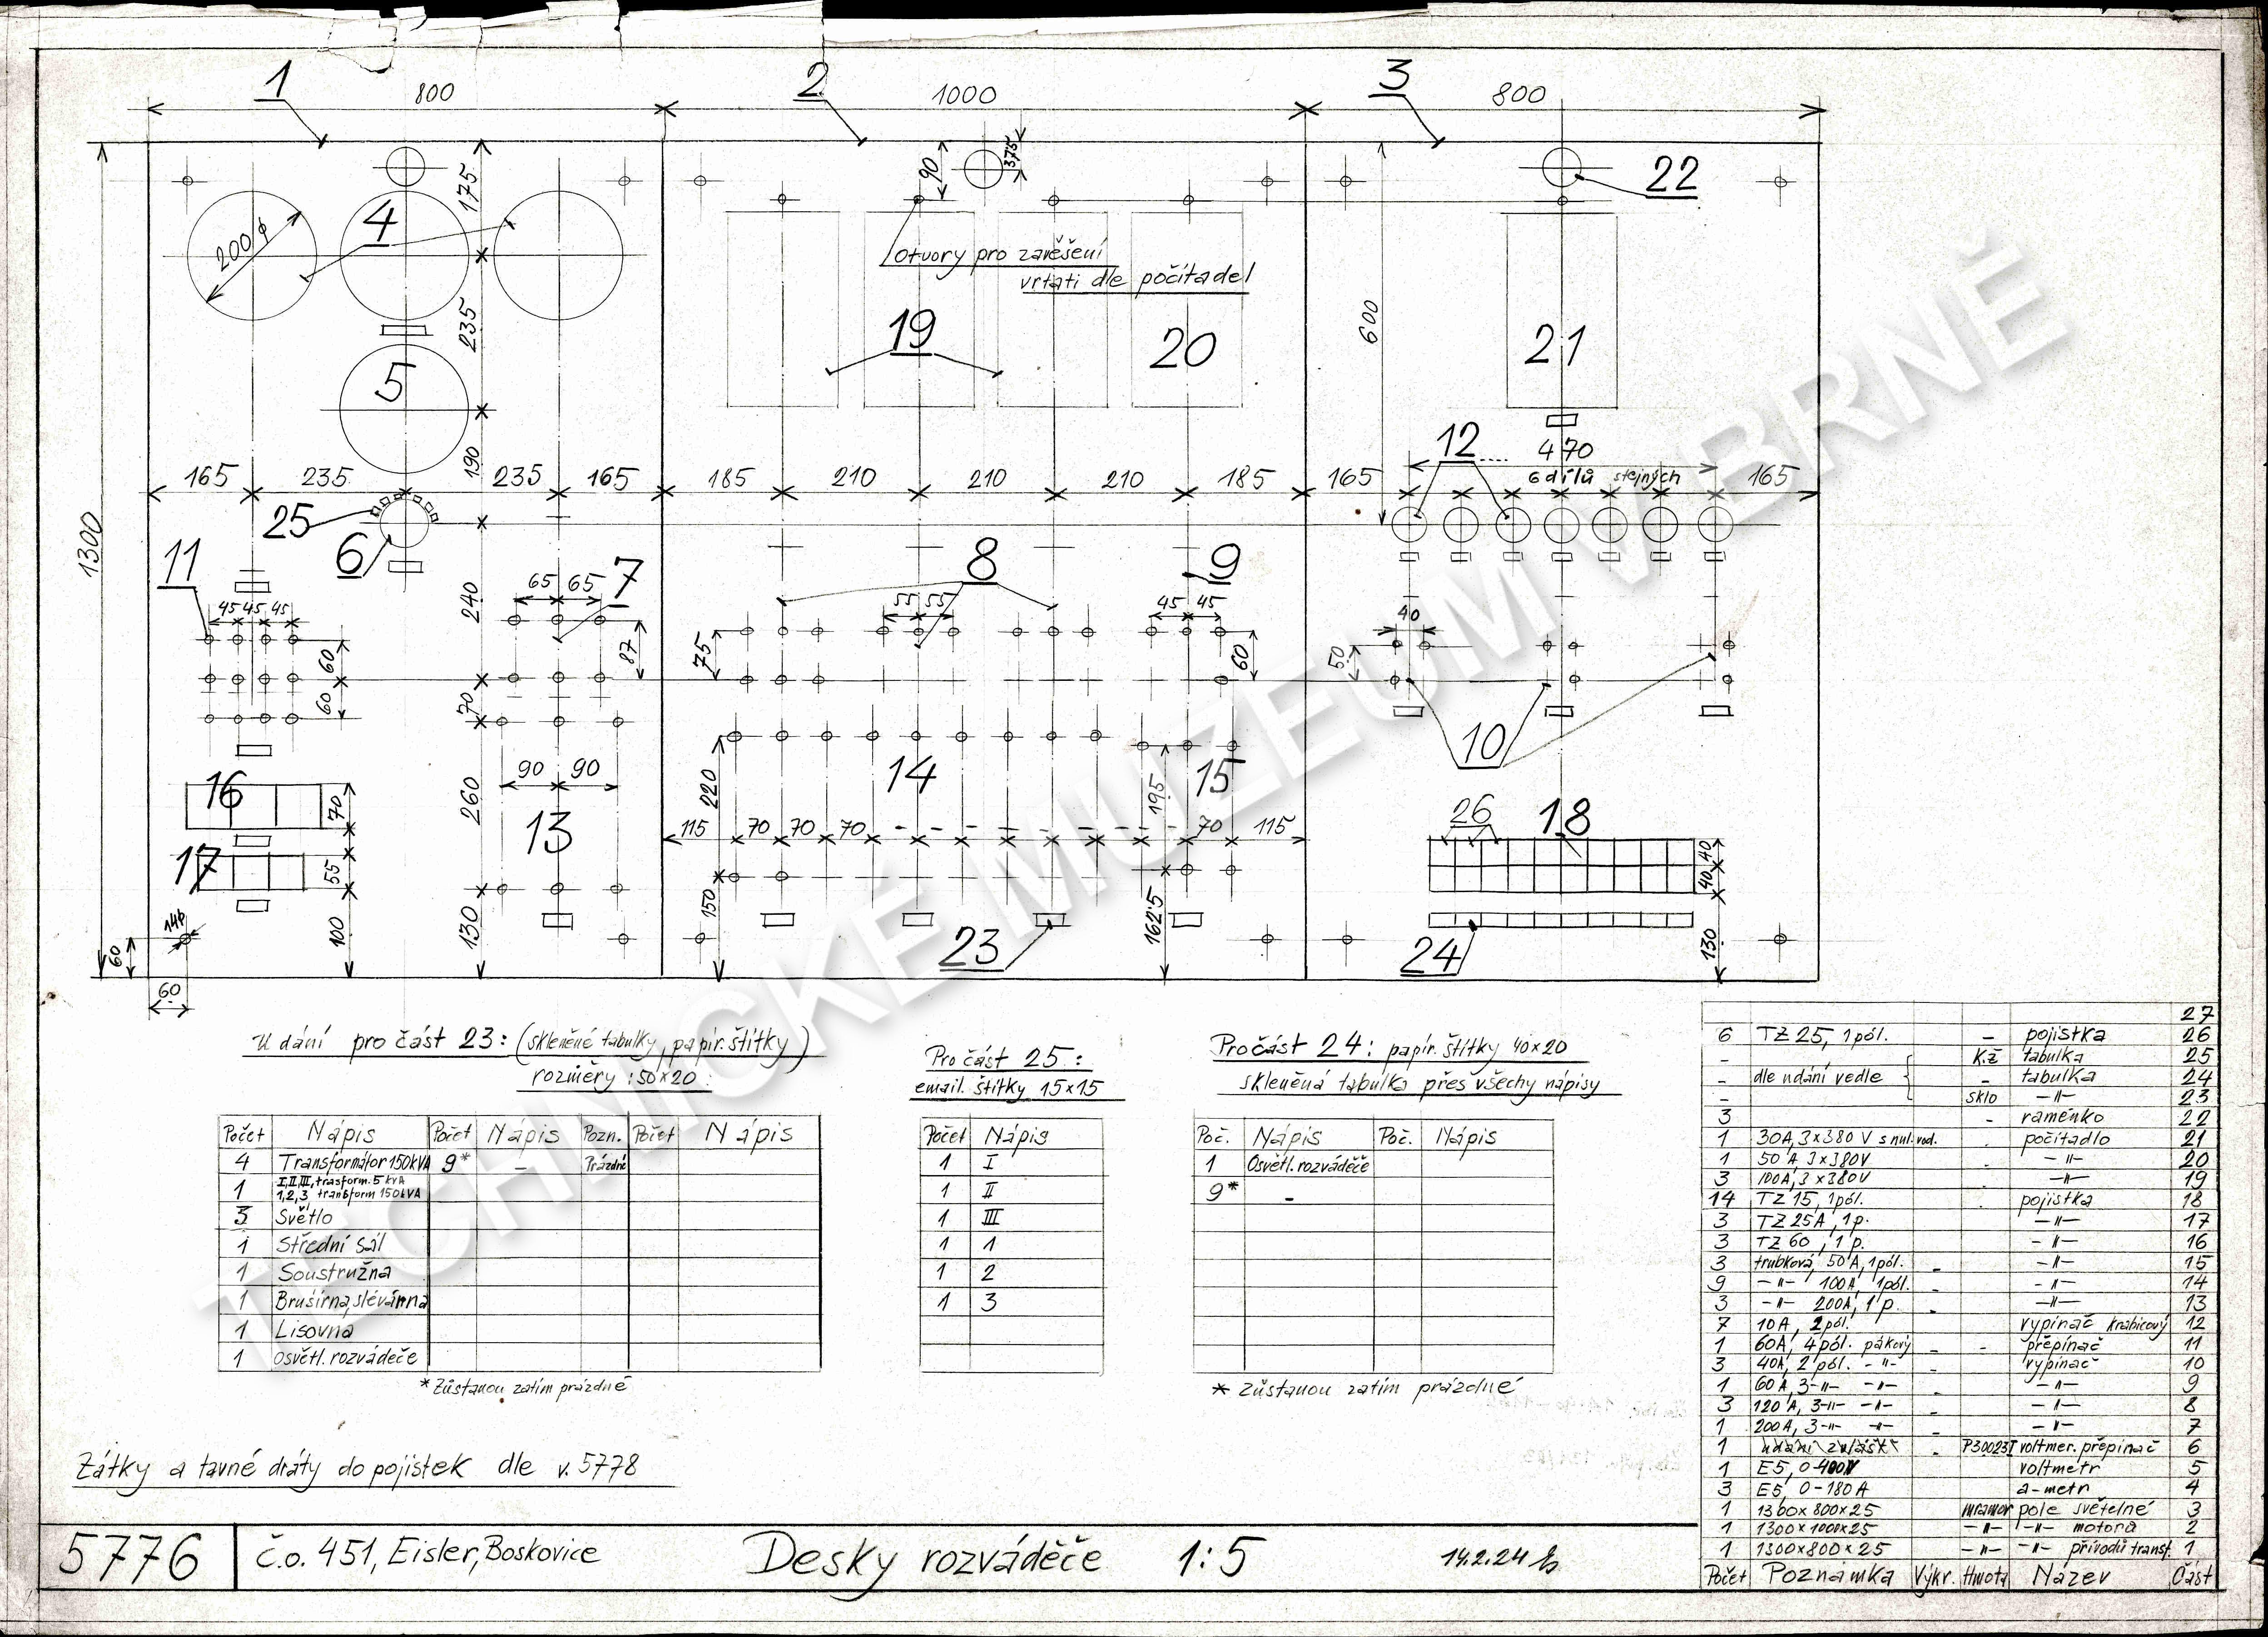 1
800
2
1000
3
800
1300
175
200 ϕ
4
235
5
190
165
235
235
165
25
6
11
7
65
65
240
45
45
45
60
60
87
70
90
90
260
13
16
70
17
55
100
130
14ϕ
60
60
90
37,5
otvory pro zavěšení
vrtati dle počítadel
19
20
185
210
210
210
185
8
9
55
55
45
45
75
60
14
15
220
195
115
70
70
70
70
115
150
162,5
23
22
600
21
12
470
6 dílů stejných
165
165
40
50
10
26
18
40
40
24
130
TECHNICKÉ MUZEUM V BRNĚ
Udání pro část 23: (skleněné tabulky, papír. štítky)
rozměry: 50×20
Počet Nápis Počet Nápis Pozn. Počet Nápis
4 Transformátor 150kVA 9* – Prázdné
1 I, II, III, trasform. 5 kVA
1, 2, 3 transform 150kVA
3 Světlo
1 Střední sál
1 Soustružna
1 Brusírna, slévárna
1 Lisovna
1 osvětl. rozváděče
* Zůstanou zatím prázdné
Pro část 25:
email. štítky 15×15
Počet Nápis
1 I
1 II
1 III
1 1
1 2
1 3
Pro část 24: papír. štítky 40×20
skleněná tabulka přes všechy nápisy
Poč. Nápis Poč. Nápis
1 Osvětl. rozváděče
9* –
* Zůstanou zatím prázdné
27
6 TZ 25, 1 pól. – pojistka 26
– Kž tabulka 25
– dle udání vedle – tabulka 24
– sklo –"– 23
3 – raménko 22
1 30A, 3×380 V s nul. vod. počítadlo 21
1 50 A, 3×380V –"– 20
3 100A, 3×380V –"– 19
14 TZ 15, 1 pól. pojistka 18
3 TZ 25A, 1 p. –"– 17
3 TZ 60, 1 p. –"– 16
3 trubková, 50 A, 1 pól. – –"– 15
9 –"– 100A, 1 pól. – –"– 14
3 –"– 200A, 1 p. – –"– 13
7 10 A, 2 pól. vypínač krabicový 12
1 60A, 4 pól. pákový – – přepínač 11
3 40A, 2 pól. –"– vypínač 10
1 60 A, 3–"– –"– – –"– 9
3 120 A, 3–"– –"– – –"– 8
1 200A, 3–"– –"– – –"– 7
1 udání zvlášť – P30023I voltmer. přepínač 6
1 E5, 0–400V voltmetr 5
3 E5, 0–180 A a-metr 4
1 1300×800×25 mramor pole světelné 3
1 1300×1000×25 –"– –"– motorů 2
1 1300×800×25 –"– –"– přívodů transf. 1
Počet Poznámka Výkr. Hmota Název Část
Zátky a tavné dráty do pojistek dle v. 5778
5776 č.o. 451, Eisler, Boskovice Desky rozváděče 1:5 14.2.24